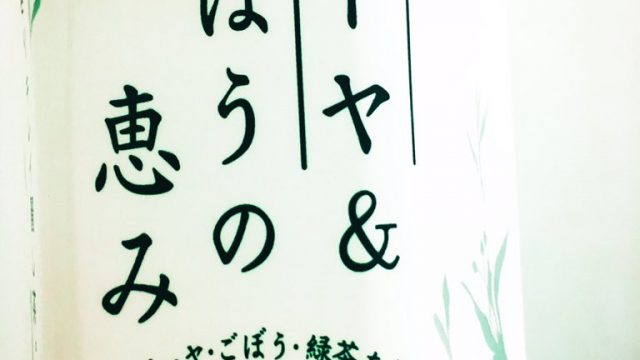 ーヤ&
ぼうの
恵み
ヤ・ごぼう・緑茶